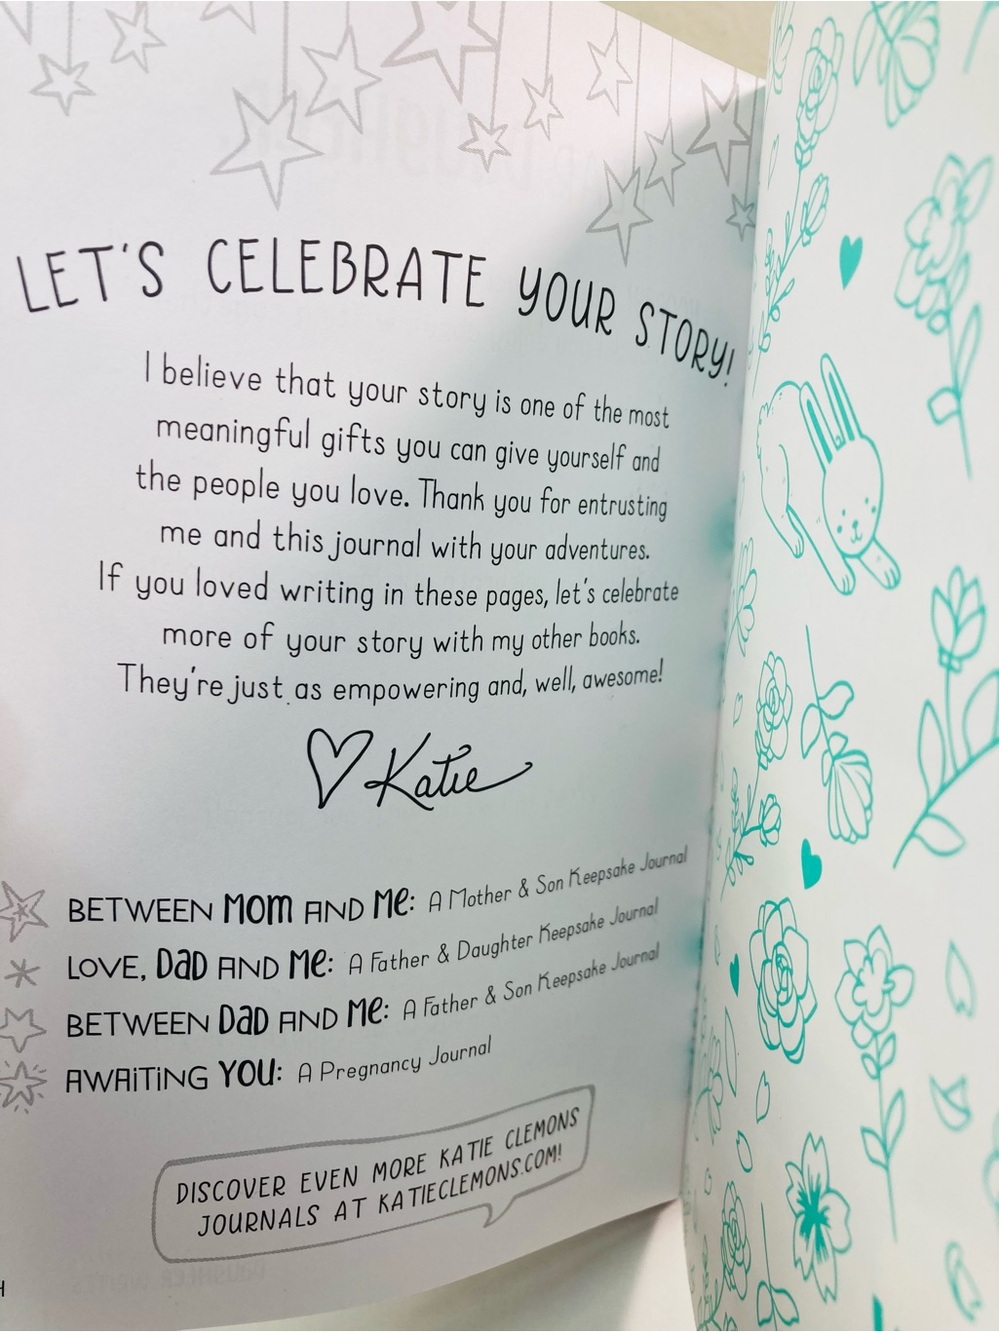 LET'S CELEBRATE YOUR STORY!
I believe that your story is one of the most
meaningful gifts you can give yourself and
the people you love. Thank you for entrusting
me and this journal with your adventures.
If you loved writing in these pages, let's celebrate
more of your story with my other books.
They're just as empowering and, well, awesome!
Katie
BETWEEN MOM AND ME: A Mother & Son Keepsake Journal
LOVE, DAD AND ME: A Father & Daughter Keepsake Journal
BETWEEN DAD AND ME: A Father & Son Keepsake Journal
AWAITING YOU: A Pregnancy Journal
DISCOVER EVEN MORE KATIE CLEMONS
JOURNALS AT KATIECLEMONS.COM!